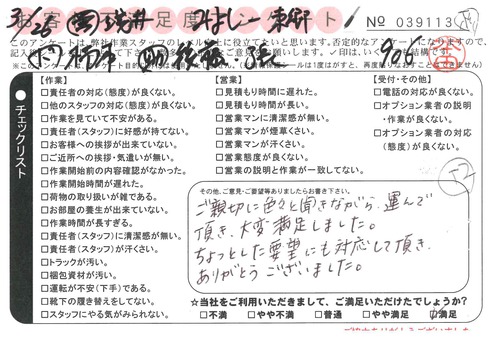 No 039113
このアンケートは、弊社作業スタッフのレベル向上に役立てたいと思います。否定的なアンケートになりますので、
【作業】
□責任者の対応(態度)が良くない。
□他のスタッフの対応(態度)が良くない。
□作業を見ていて不安がある。
□責任者(スタッフ)に好感が持てない。
□お客様への挨拶が出来ていない。
□ご近所への挨拶・気遣いが無い。
□作業開始前の内容確認がなかった。
□作業開始時間が遅れた。
□荷物の取り扱いが雑である。
□お部屋の養生が出来ていない。
□作業時間が長すぎる。
□責任者(スタッフ)に清潔感が無い。
□責任者(スタッフ)が汗くさい。
□トラックが汚い。
□梱包資材が汚い。
□運転が不安(下手)である。
□靴下の履き替えをしてない。
□スタッフにやる気がみられない。
【営業】
□見積もり時間に遅れた。
□見積もり時間が長い。
□営業マンに清潔感が無い。
□営業マンが煙草くさい。
□営業マンが汗くさい。
□営業態度が良くない。
□営業の説明と作業が一致してない。
【受付・その他】
□電話の対応が良くない。
□オプション業者の説明
・作業が良くない。
□オプション業者の対応
(態度)が良くない。
チェックリスト
その他、ご意見・ご要望等ありましたらお書き下さい。
ご親切に色々と聞きながら、運んで
頂き、大変満足しました。
ちょっとした要望にも対応して頂き、
ありがとうございました。
☆当社をご利用いただきまして、ご満足いただけたでしょうか?
□不満 □やや不満 □普通 □やや満足 □満足